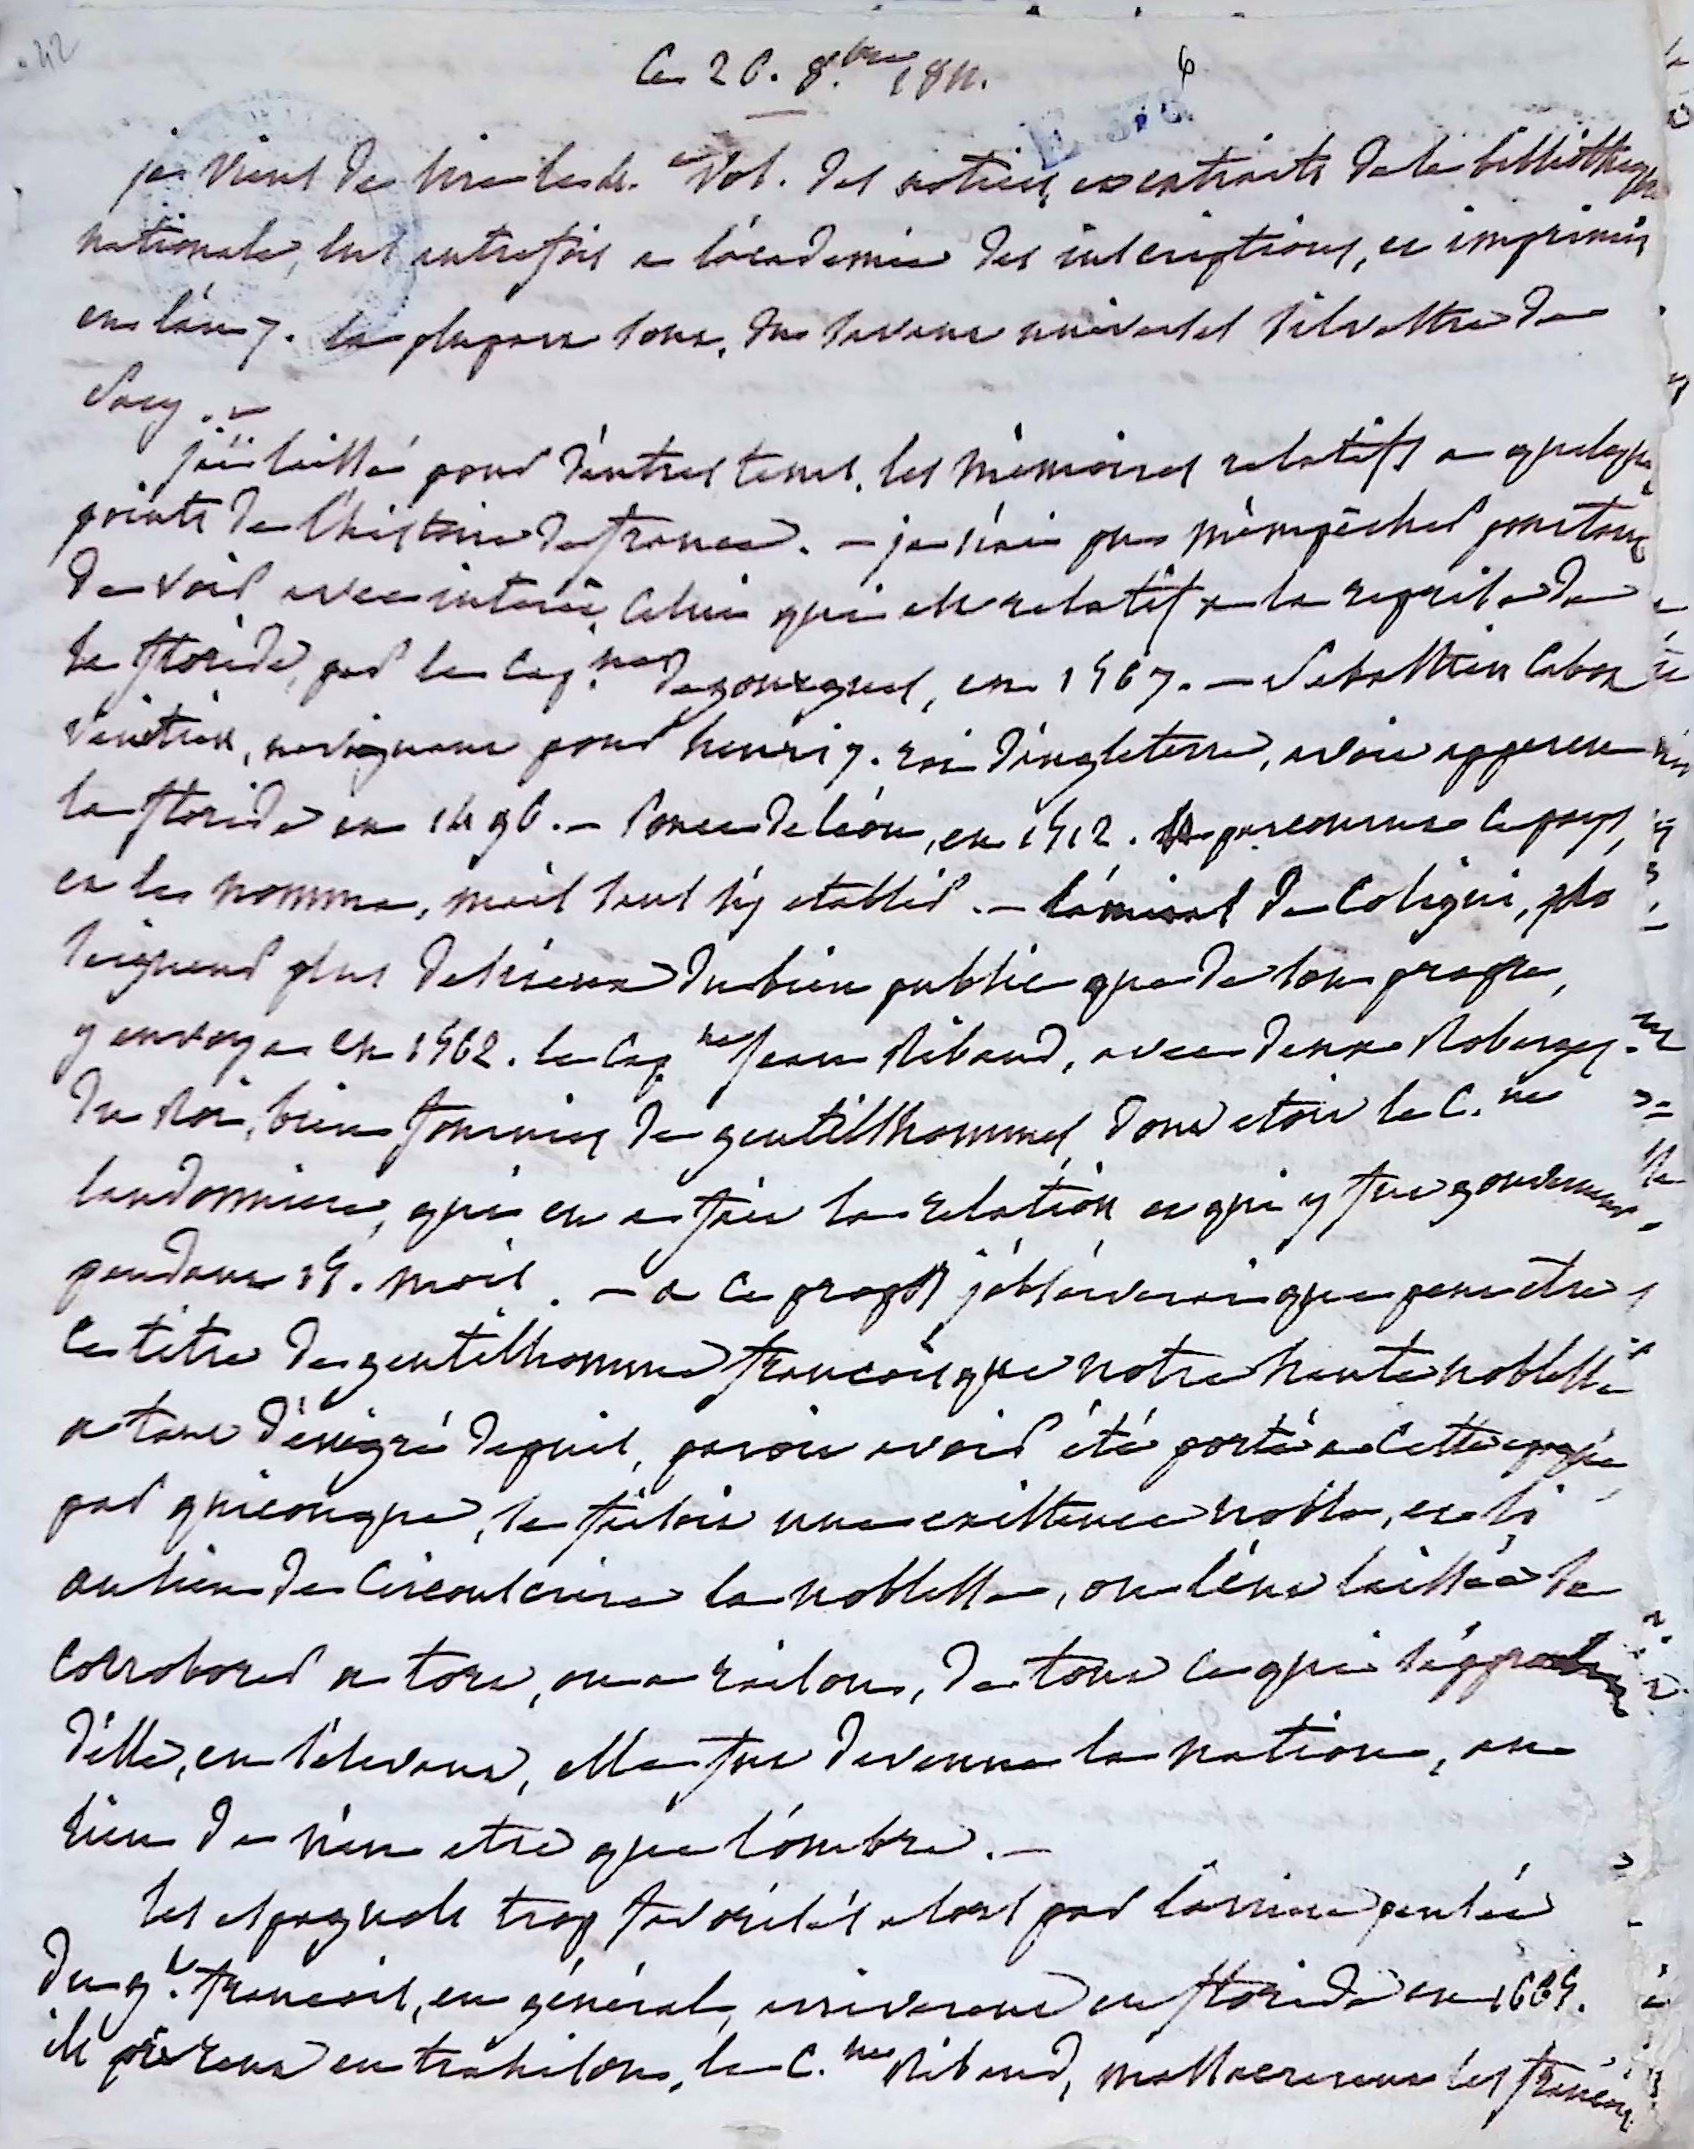 42
Ce 26. 8.bre 1811.
6
je viens de lire le 4.e vol. des notices et extraits de la bibliotheque
nationale, lus autrefois a l'académie des inscriptions, et imprimés
en l'an 7. la plupart sont, du savant universel Silvestre de
Sacy. —
j'ai laissé pour d'autres tems, les mémoires relatifs a quelques
points de l'histoire de france. — je n'ai pu m'empêcher pourtant
de voir avec interêt, celui qui est relatif a la reprise de
la floride, par le cap.ne de gourgues, en 1567. — Sebastien Cabot
vénitien, navigant pour henri 7. roi d'angleterre, avoit apperçu
la floride en 1496. — Ponce de léon, en 1512. parcourut ce pays,
et le nomma, mais sans s'y etablir. — l'amiral de Coligni,
seigneur plus desireux du bien public que de son propre,
y envoya en 1562. le cap.ne Jean Ribaud, avec deux Roberges
du Roi, bien fournies de gentilshommes, dont etoit le C.ne
laudonniere, qui en a fait la relation et qui y fut gouverneur
pendant 15. mois. — a ce propos j'observerai que peut etre
ce titre de gentilhomme françois que notre haute noblesse
a tant dénigré depuis, paroit avoir été porté a cette epoque,
par quiconque, se faisoit une existence noble, et si
au lieu de circonscrire la noblesse, on l'eut laissée se
corroborer a tort, ou a raison, de tout ce qui
d'elle, en s'elevant, elle fut devenue la nation, au
lieu de n'en etre que l'ombre. —
les espagnols trop favorisés alors par l'arriere pensée
du g.t françois, en général, arriverent en floride en 1665.
ils prirent en trahison, le C.ne Ribaud, massacrerent les françois